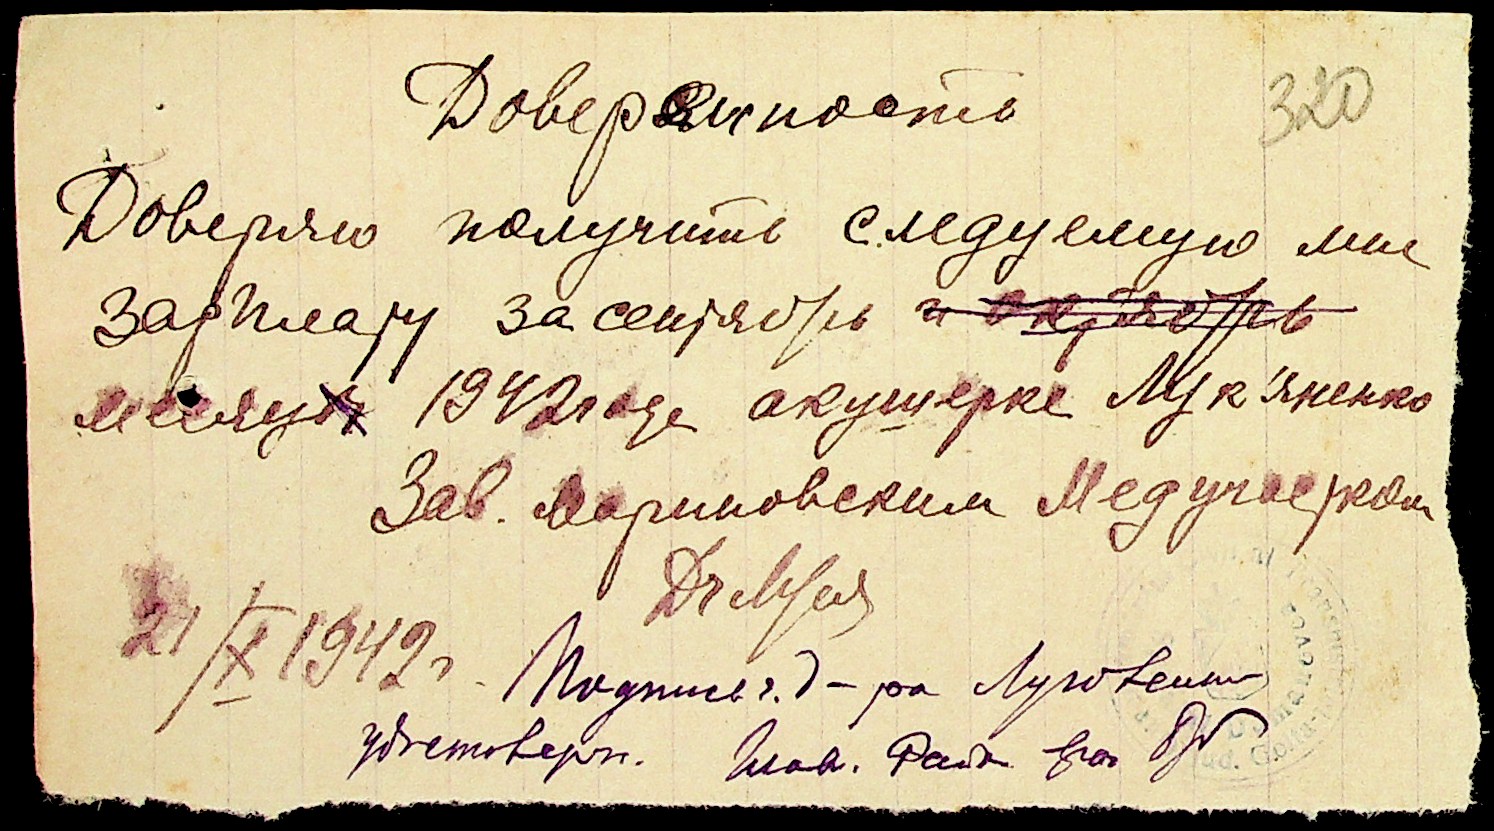 Доверенность
320
Доверяю получить следуемую мне
зарплату за сентябрь и октябрь
месяц 1942 года акушерке Лук'яненко
Зав. Мариновским Медучастком
21/X 1942г.
Подпись г. д-ра
удостовер. Глав. Райн. врач